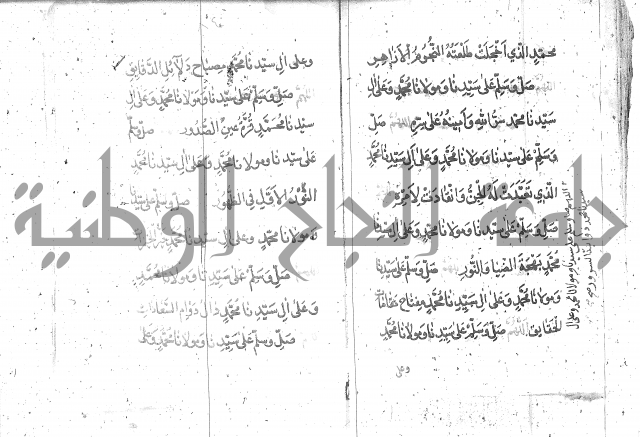 محمد الذي اخجلت طلعته النجوم الازاهر
صل وسلم على سيدنا ومولانا محمد وعلى ال
سيدنا محمد سر الله وأمينه على سره صل
وسلم على سيدنا ومولانا محمد وعلى ال سيدنا محمد
الذي تقيدت له الجن وانقادت لامره
صل وسلم على سيدنا ومولانا محمد وعلى ال سيدنا
محمد بهجة الضيا والنور صل وسلم على سيدنا
ومولانا محمد وعلى ال سيدنا محمد مفتاح
الحقايق اللهم صل وسلم على سيدنا ومولانا محمد
وعلى
وعلى ال سيدنا محمد مصباح دلايل الدقايق
اللهم صل وسلم على سيدنا ومولانا محمد وعلى ال
سيدنا محمد قرة عين الصدور صل وسلم
على سيدنا ومولانا محمد وعلى ال سيدنا محمد
النور الاول في الظهور صل وسلم على سيدنا
ومولانا محمد وعلى ال سيدنا محمد
صل وسلم على سيدنا ومولانا محمد
وعلى ال سيدنا محمد دال دوام السعادات
صل وسلم على سيدنا ومولانا محمد وعلى
جامعة النجاح الوطنية